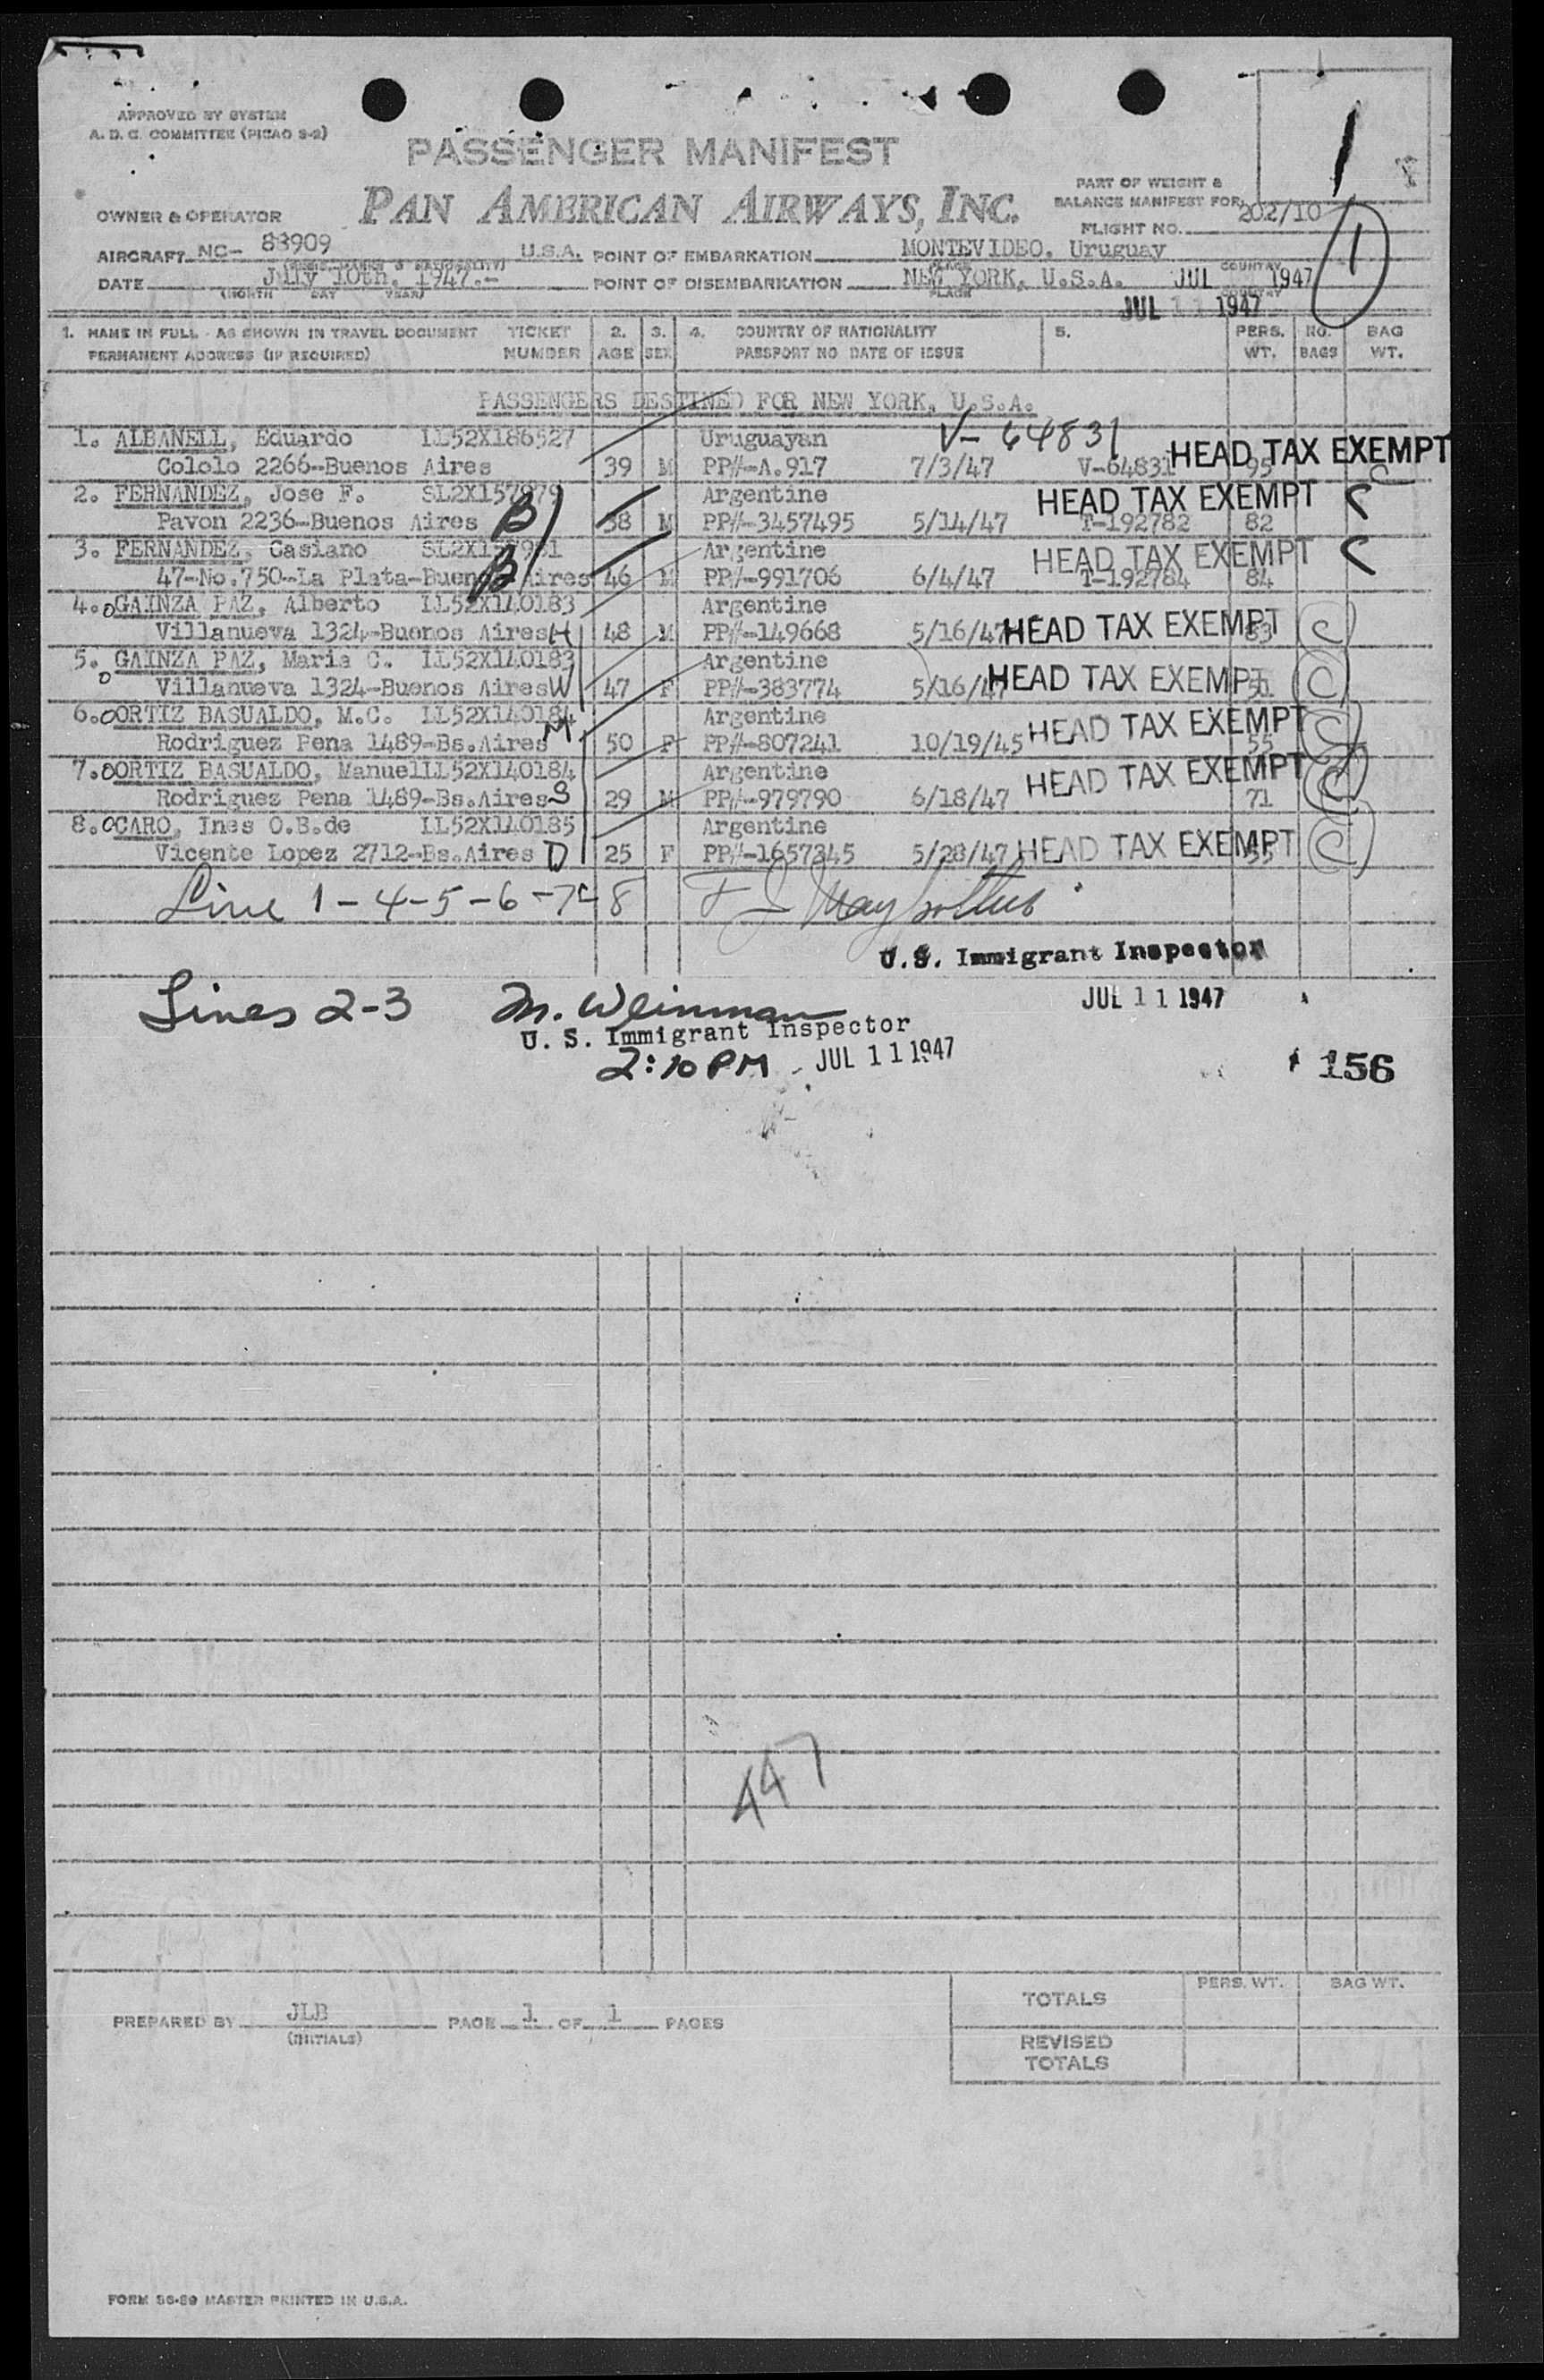 APPROVED BY SYSTEM
A. D. C. COMMITTEE (PICAO 2-2)
PASSENGER MANIFEST
PAN AMERICAN AIRWAYS, INC.
1
PART OF WEIGHT &
BALANCE MANIFEST FOR
FLIGHT NO. 202/10
1
OWNER & OPERATOR
AIRCRAFT NC- 88909 U.S.A. POINT OF EMBARKATION MONTEVIDEO, Uruguay
DATE July 10th, 1947.- POINT OF DISEMBARKATION NEW YORK, U.S.A. JUL 1947
(MONTH DAY YEAR) PLACE COUNTRY
JUL 11 1947
1. NAME IN FULL - AS SHOWN IN TRAVEL DOCUMENT TICKET 2. 3. 4. COUNTRY OF NATIONALITY 5. PERS. NO. BAG
PERMANENT ADDRESS (IF REQUIRED) NUMBER AGE SEX PASSPORT NO DATE OF ISSUE WT. BAGS WT.
PASSENGERS DESTINED FOR NEW YORK, U.S.A.
1. ALBANELL, Eduardo IL52X186527 Uruguayan V-64831 HEAD TAX EXEMPT
Cololo 2266--Buenos Aires 39 M PP#-A.917 7/3/47 V-64831 95
2. FERNANDEZ, Jose F. SL2X157979 B Argentine HEAD TAX EXEMPT
Pavon 2236--Buenos Aires 38 M PP#-3457495 5/14/47 T-192782 82
3. FERNANDEZ, Casiano B Argentine HEAD TAX EXEMPT
47-No.750--La Plata-Buenos Aires 46 M PP#-991706 6/4/47 T-192784 84
4. GAINZA PAZ, Alberto IL52X140183 Argentine HEAD TAX EXEMPT
Villanueva 1324-Buenos Aires H 48 M PP#-149668 5/16/47 83
5. GAINZA PAZ, Maria C. IL52X140183 Argentine HEAD TAX EXEMPT
Villanueva 1324-Buenos Aires W 47 F PP#-383774 5/16/47
6. ORTIZ BASUALDO, M.C. IL52X140184 Argentine HEAD TAX EXEMPT
Rodriguez Pena 1489-Bs.Aires M 50 F PP#-807241 10/19/45 55
7. ORTIZ BASUALDO, Manuel IL52X140184 Argentine HEAD TAX EXEMPT
Rodriguez Pena 1489-Bs.Aires S 29 M PP#-979790 6/18/47 71
8. CARO, Ines O.B.de IL52X140185 Argentine HEAD TAX EXEMPT
Vicente Lopez 2712--Bs.Aires D 25 F PP#-1657345 5/28/47
Line 1-4-5-6-7-8
U.S. Immigrant Inspector
JUL 11 1947
Lines 2-3 M. Weinman
U. S. Immigrant Inspector
2:10 PM JUL 11 1947
156
447
PREPARED BY JLB PAGE 1 OF 1 PAGES
(INITIALS)
PERS. WT. BAG WT.
TOTALS
REVISED
TOTALS
FORM 36-89 MASTER PRINTED IN U.S.A.